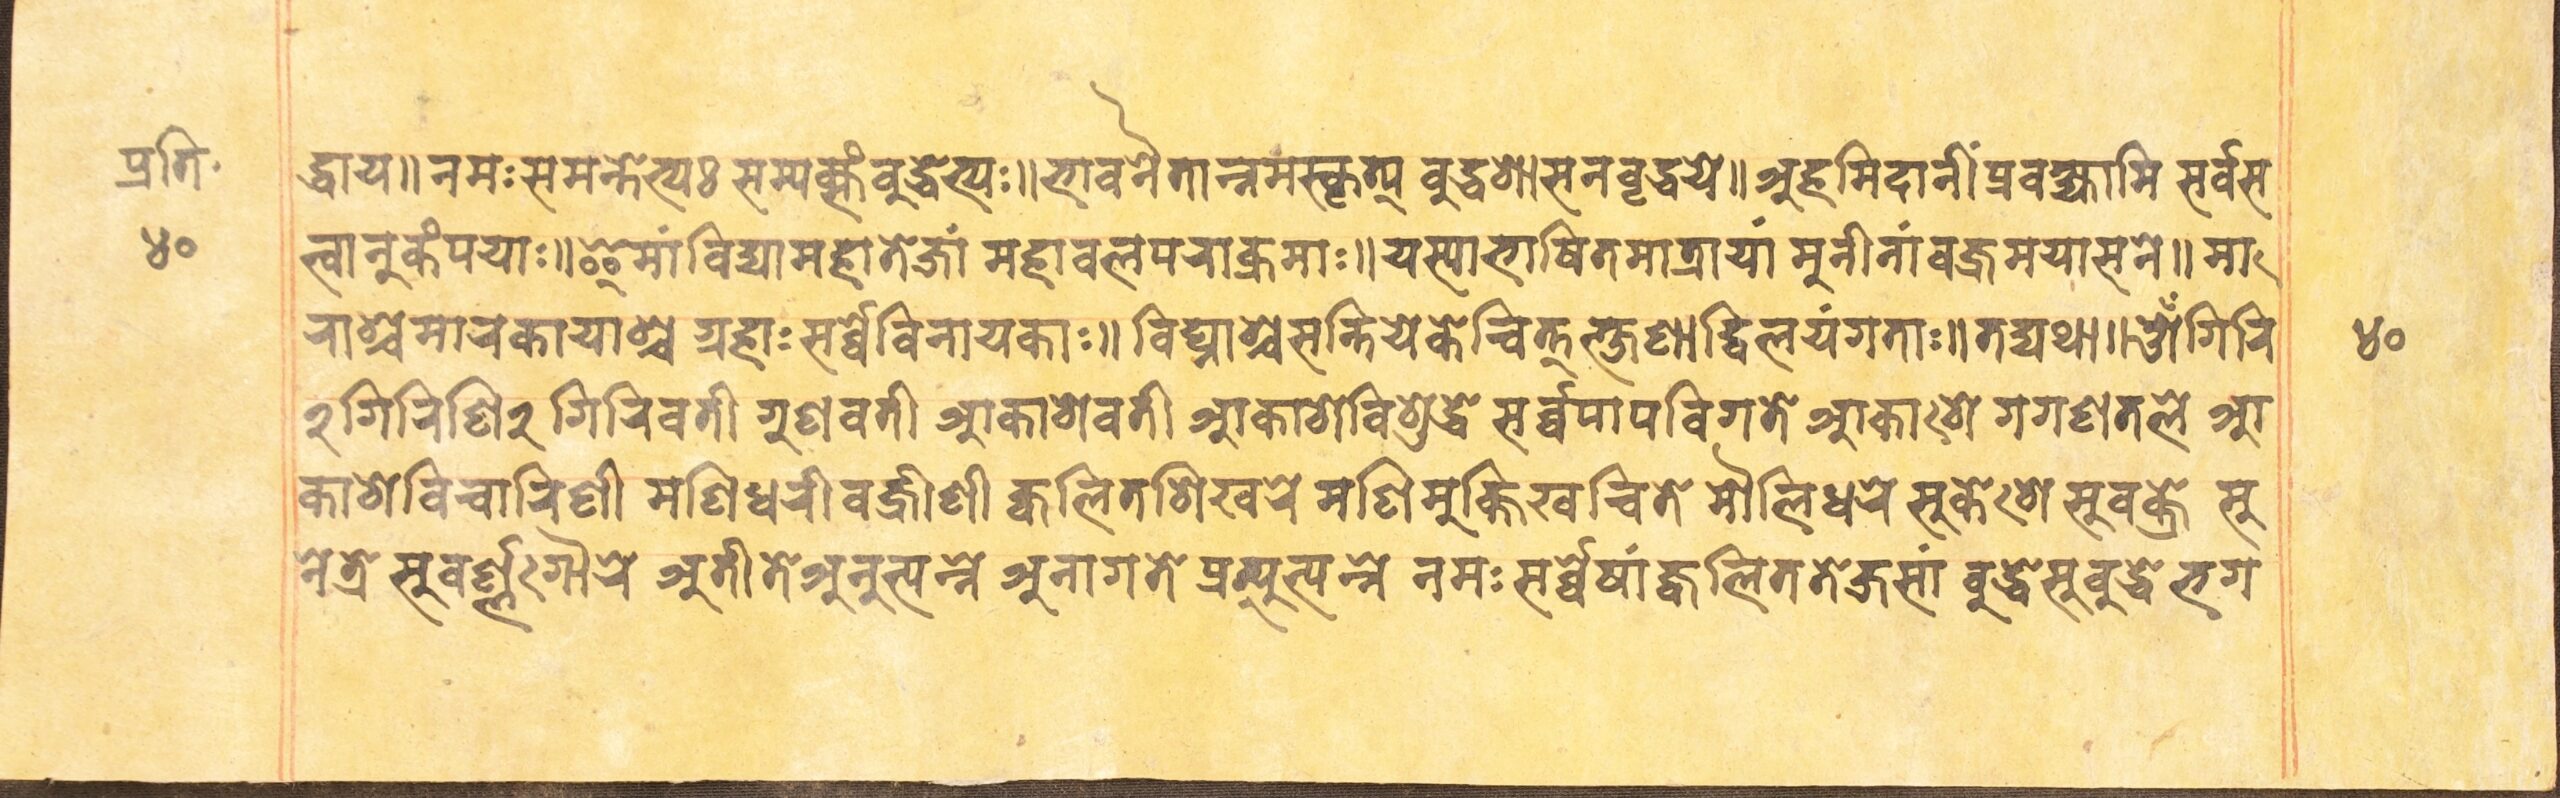 प्रति·
४०
द्धाय॥ नमःसमन्तेभ्यः सम्यक्संबुद्धेभ्यः॥भावनैतान्नमस्कृत्य बुद्धशासनवृद्धये॥ अहमिदानीं प्रवक्ष्यामि सर्वस
त्वानुकंपयाः॥इमां विद्यामहातेजां महावलपराक्रमाः॥ यस्याभाषितमात्रायां मुनीनां वज्रमयासने॥ मा
राश्चमारकायाश्च ग्रहाः सर्व्वेविनायकाः॥ विघ्नाश्चसन्तियेकेचित्तत्क्षणाद्विलयंगताः॥तद्यथा॥ॐगिरि
२गिरिणि२ गिरिवती गुणवती आकाशवती आकाशविशुद्धे सर्व्वपापविगते आकाशे गगणतले आ
काशविचारिणी मणिधरी वज्रीणी ज्वलितशिखरे मणिमुक्तिखचिते मौलिधरे सुकेशे सुवक्त्रे सु
नेत्रे सुवर्ण्णगौरे अतीते अनुत्पन्ने अनागते प्रत्युत्पन्ने नमः सर्व्वेषांज्वलिततेजसां बुद्धेसुबुद्धे भग
४०